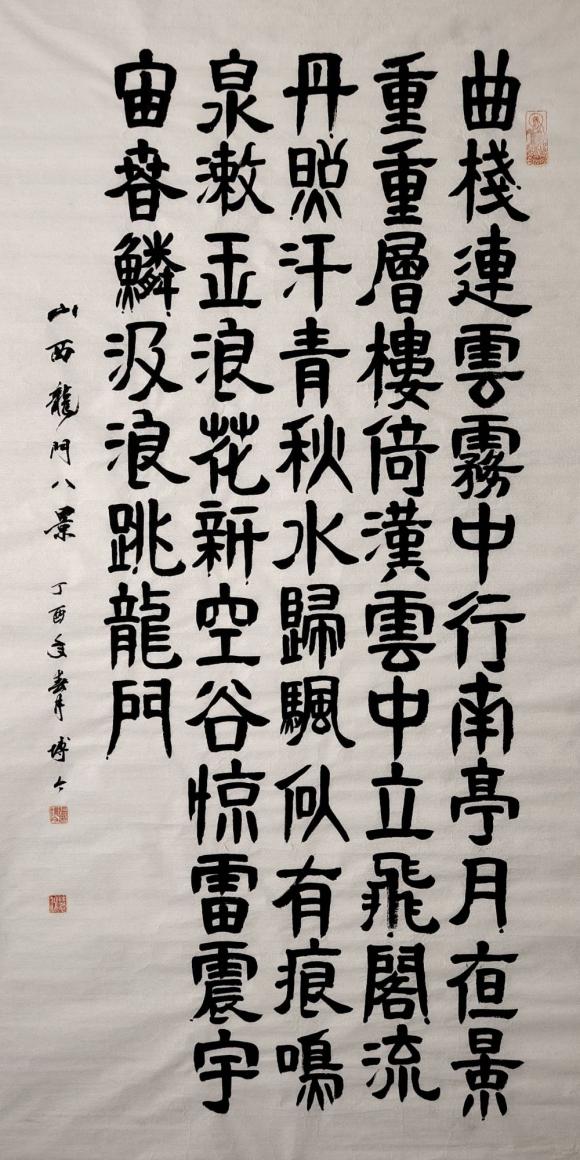 曲棧連雲霧中行南亭月亱景
重重層樓倚漢雲中立飛閣流
丹照汗青秋水歸颿似有痕鳴
泉漱玉浪花新空谷惊雷震宇
宙春鱗汲浪跳龍門
山西龍門八景 丁酉年春月 博今